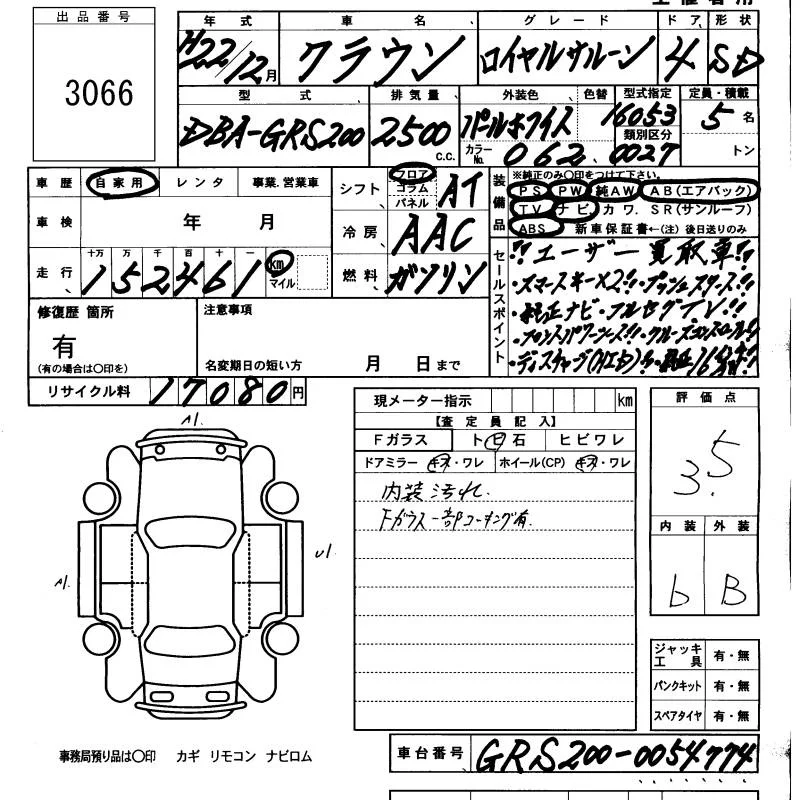 出品番号
3066
年式 車名 グレード ドア 形状
H22/12月 クラウン ロイヤルサルーン 4 SD
型式 排気量 外装色 色替 型式指定 定員・積載
DBA-GRS200 2500 c.c. パールホワイト 16053 5名
カラーNo. 062 類別区分 0027 トン
車歴 自家用 レンタ 事業.営業車
シフト フロア コラム パネル AT
装備品 ※純正のみ○印をつけて下さい。
PS PW 純AW AB(エアバック)
TV ナビ カワ. SR(サンルーフ)
ABS 新車保証書←(注)後日送りのみ
車検 年 月
冷房 AAC
走行 十万 万 千 百 十 一
152461 km マイル
燃料 ガソリン
セールスポイント
!!ユーザー買取車!!
・スマートキー×2!!・プッシュスタート!!
・純正ナビ・フルセグTV!!
・フロントパワーシート!!・クルーズコントロール!!
・ディスチャージ(HID)!!・純正16
修復歴 箇所
有
(有の場合は○印を)
注意事項
名変期日の短い方 月 日まで
リサイクル料 17080円
現メーター指示 km
【査定員記入】
Fガラス ト ヒ 石 ヒビワレ
ドアミラー キズ・ワレ ホイール(CP) キズ・ワレ
内装汚れ.
Fガラス一部コーチング有.
評価点
3.5
内装 外装
b B
A1.
A1.
U1.
ジャッキ工具 有・無
パンクキット 有・無
スペアタイヤ 有・無
事務局預り品は○印 カギ リモコン ナビロム
車台番号 GRS200-0054774